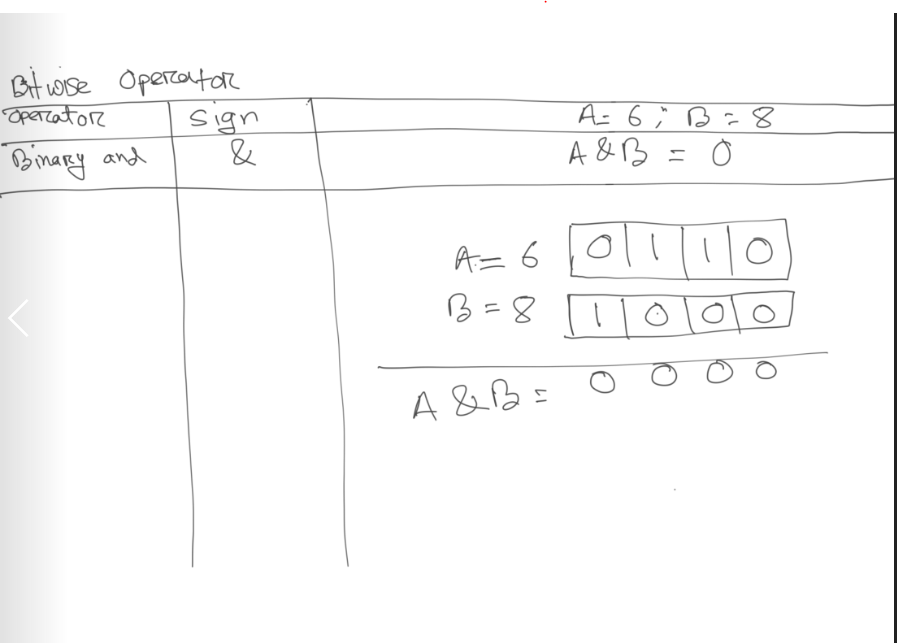 Bitwise Operator
Operator sign A= 6 ; B = 8
Binary and & A & B = 0
A = 6 0 1 1 0
B = 8 1 0 0 0
A & B = 0 0 0 0